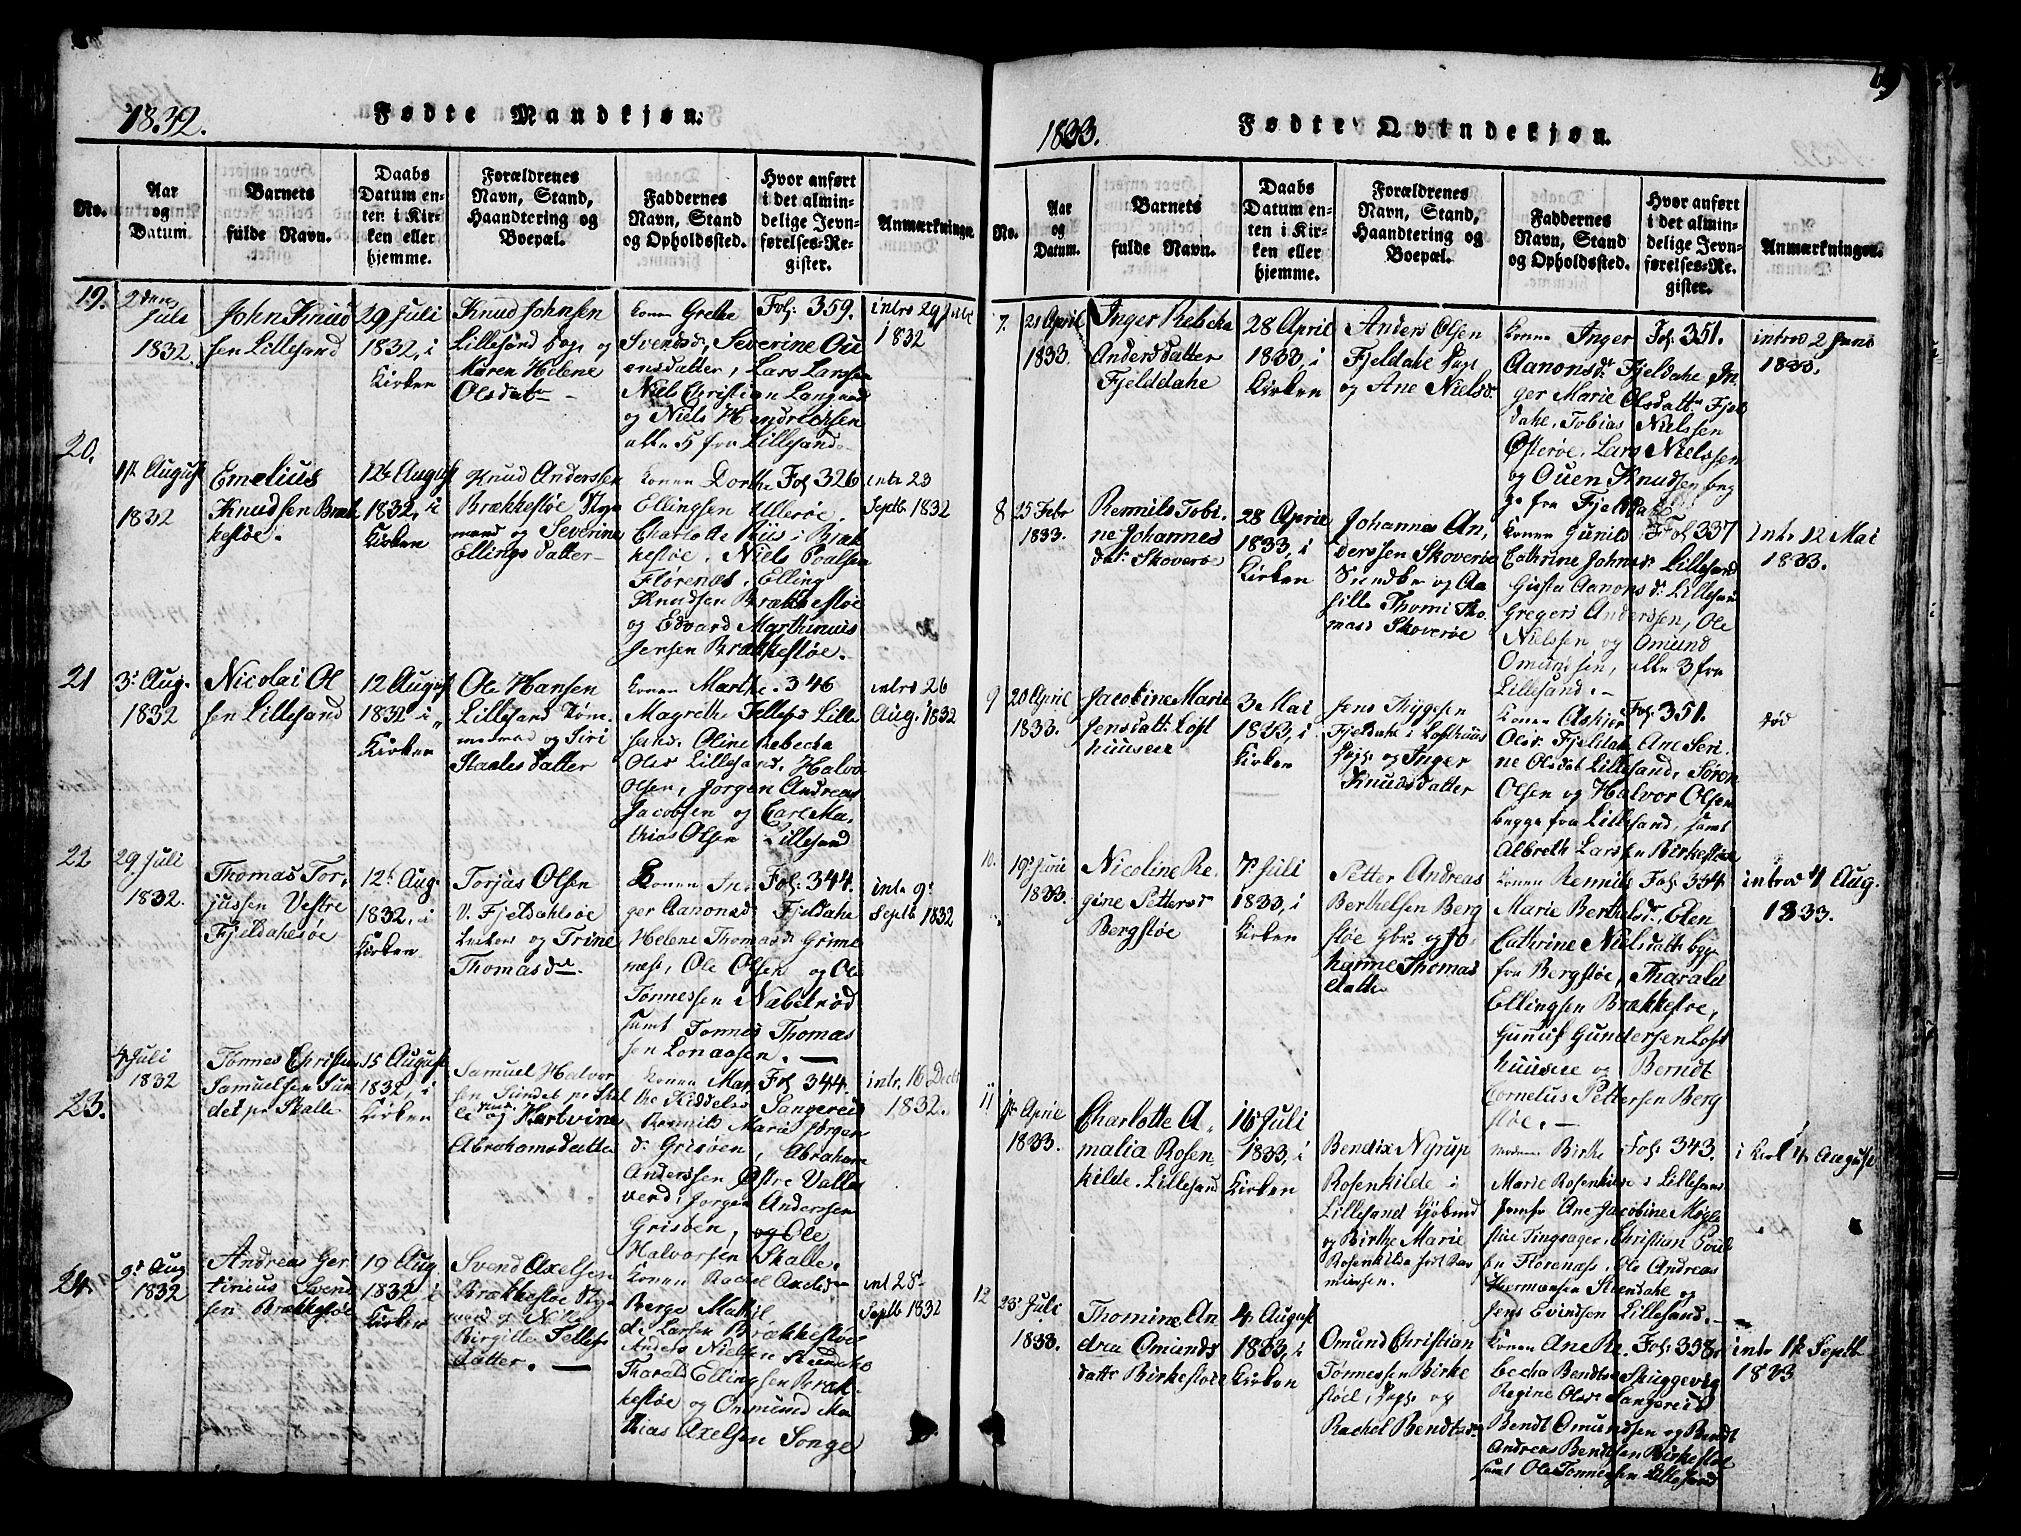 1832.
Fødte Mandkjøn.
No.
Aar
og
Datum.
Barnets
fulde Navn.
Daabs
Datum en-
ten i Kir-
ken eller
hjemme.
Forældrenes
Navn, Stand,
Haandtering og
Boepæl.
Faddernes
Navn, Stand
og Opholdssted.
Hvor anført
i det almin-
delige Jevn-
førelses-Re-
gister.
Anmærkninger
19.
Juli
1832.
John Knud
sen Lillesand
29 Juli
1832, i
Kirken
Knud Johnsen
Lillesand
og
Maren Helene
Olsdatr
Konen Grethe
Svends, Severine Ou
ensdatter, Lars Larssen
Niels Christian Langaard
og Niels Hendrichsen
alle 5 fra Lillesand.
Fol: 359.
intro 29 Juli
1832
20.
1st August
1832
Emelius
Knudsen Bræk
kestøe.
12t August
1832, i
Kirken
Knud Anderssen
Brækkestøe
mand og Severine
Ellings datter
Konen Dorthe
Ellingsen Ullerøe
Charlotte Riis i Bræk
kestøe, Niels Poulsen
Florenæs, Elling
Knudsen Brækkestøe
og Edvard Marthinuis
Jensen Brækkestøe.
Fol 326
intr 23
Septb 1832
21
3d Aug.
1832
Nicolai Ol
sen Lillesand
12 August
1832 i
Kirken
Ole Hansen
Lillesand Tøm-
mermand og Siri
Staalesdatter
Konen Marthe
Magrethe Tellefsd Lille
sand, Oline Rebecha
Olsd Lillesand, Halvo
Olsen, Jørgen Andreas
Jacobsen og Carl Ma-
thias Olsen Lillesand
346
intro 26
Aug. 1832
22
29 Juli
1832.
Thomas Tor-
jussen Vestre
Fjeldahlsøe
12t Aug.
1832, i
Kirken
Torjus Olsen
V. Fjeldahlsøe
og Trine
Thomasd
Konen In-
ger Aanonsd Fjeldahe
Helene Thomasd Grime
næs, Ole Olsen og Ole
Tønnessen i Nabelrød
samt Tønnes Thomas
sen Lonaasen.
Fol: 344.
intr 9
Septb 1832
23.
Juli
1832
Tønnes Christen
Samuelsen Sun
det pr Skalle
15 August
1832 i
Kirken
Samuel Halvor
sen Sundet pr Skal
le og Hartvine
Abrahamsdatter
Konen Mar
the Kiddelsd Sangereid
Rommild Marie Jørgen
d. Grisøen, Abraham
Anderssen Østre Valles
verd, Jørgen Anderssen
Grisøen, og Ole
Halvorsen Skalle.
Fol 344.
intr. 16 Dect
1832.
24.
9d Aug
1832
Andreas Ger
tinius Svend
sen Brækkestøe
19 Aug.
1832 i
Kirken
Svend Axelsen
Brækkestøe
mand og Nelle
Birgitte Tellefs
datter.
Konen Rachel Axelsd
Berge Mathil
de Larsen Brækkestøe
Anders Nielsen
Tharald Ellingsen Bræk-
kestøe og Ommund Ma
thias Axelsen Songe
int 28
Septb 1832
1833.
Fødte Qvindekjøn.
No.
Aar
og
Datum.
Barnets
fulde Navn.
Daabs
Datum en-
ten i Kir-
ken eller
hjemme.
Forældrenes
Navn, Stand,
Haandtering og
Boepæl.
Faddernes
Navn, Stand
og Opholdssted.
Hvor anført
i det almin-
delige Jevn-
førelses-Re-
gister.
Anmærkninger.
7.
21 April
1833.
Inger Rebecka
Andersdatter
Fjelddahe
28 April
1833, i
Kirken
Anders Olsen
Fjeldahe
og Ane Nielsd.
Konen Inger
Aanonsd. Fjeldahe, In
ger Marie Olsdattr Fjel
dahe, Tobias Nielssen
Østerøe, Lars Nielssen
og Ouen Knudsen beg
ge fra Fjeldahe
Fol 351.
intro 2 Juni
1833.
8
25 Febr
1833.
Remils Tobi
ne Johannes
datr Skoverøe
28 April
1833, i
Kirken
Johannes An,
derssen Skoverøe
og Aa
sille Thomi Tho
masd Skoverøe
Konen Gunild
Cathrine Johnsd Lillesand
Gusta Aanonsd Lillesand
Gregers Anderssen, Ole
Nielssen og Omund
Omundsen, alle 3 fra
Lillesand.
Fol 337
Intro 12 Mai
1833.
9
20 April
1833.
Jacobine Marie
Jensdatt. Loft
huusene
3 Mai
1833, i
Kirken
Jens Thygesen
Fjeldahe i Lofthuus
og Inger
Knudsdatter
Konen Askjer
Olsd Fjeldahe, Ane Seri
ne Olsdat Lillesand, Søren
Olsen og Halvor Olsen
begge fra Lillesand, samt
Albreth Larsen Birkestøe
Fol: 351.
død
10.
19d Juni
1833.
Nicoline Re-
gine Pettersd
Bergstøe
7d Juli
1833, i
Kirken
Petter Andreas
Berthelsen Berg
støe Gbr. og Jo
hanne Thomas
datter
Konen Remild
Marie Berthelsd, Elen
Cathrine Nielsdatt. beg
fra Bergstøe, Tharald
Ellingsen Brækkestøe,
Gunuf Gundersen Loft
huusene og Berndt
Cornelius Pettersen Berg
støe.
Fol: 334
introd 4 Aug.
1833.
11
April
1833.
Charlotte A-
malia Rosen
kilde. Lillesand
16 Juli
1833, i
Kirken
Bendix Nyrup
Rosenkilde i
Lillesand Kjøbmd
og Birthe Marie
Rosenkilde født Ras
mussen.
Birthe
Marie Rosenkilde i Lillesand
Jomfr Ane Jacobine Møgle
stue Tingsager, Christian Poul
sen Florenæss, Ole Andreas
Hermansen Steendahe og
Jens Evindsen Lillesand.
Fol: 343.
i Kirk 4 August
12
23d Juli
1833.
Thomine An
drea Omunds
datte Birkestøe
4 August
1833, i
Kirken
Omund Christian
Tønnessen Birke
støe, og
Rachel Bendtsd.
Konen Ane Re.
becha Bendtsd Skiggevig
Regine Olsd Sangereid
Bendt Omundsen og Bendt
Andreas Bendtsen Birkestøe
samt Ole Tønnessen Lillesand
Fol: 338
intr 1t Septb
1833